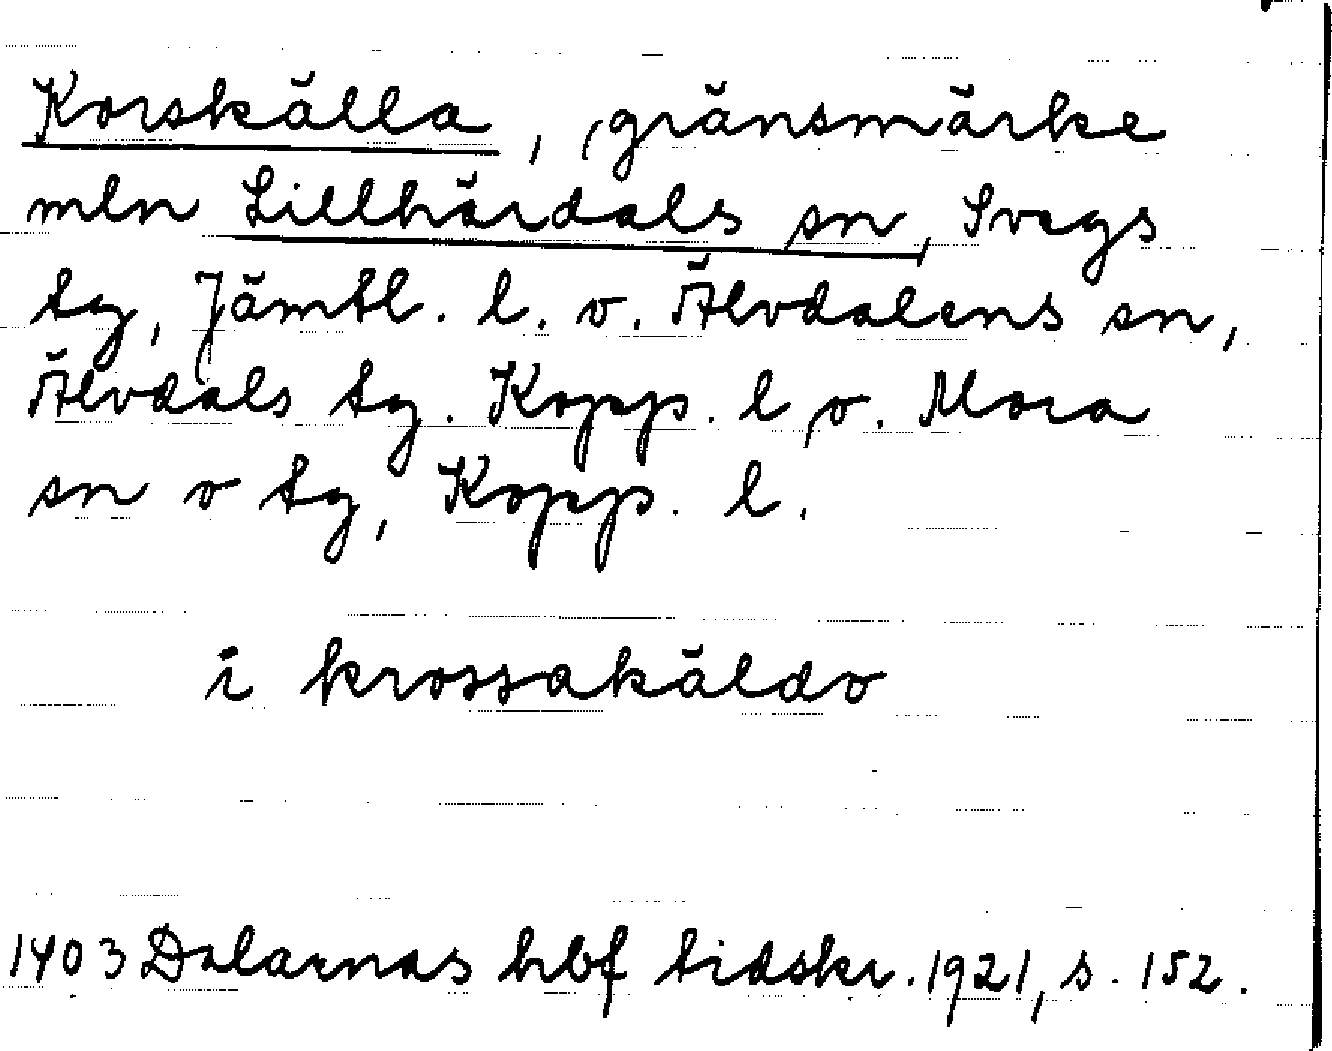 Korskälla, (gränsmärke
mln Lillhärdals sn, Svegs
tg, Jämtl. l. o. Älvdalens sn,
Älvdals tg. Kopp. l, o. Mora
sn o tg, Kopp. l.
i krossakäldo
1403 Dalarnas hbf tidskr. 1921, s. 152.